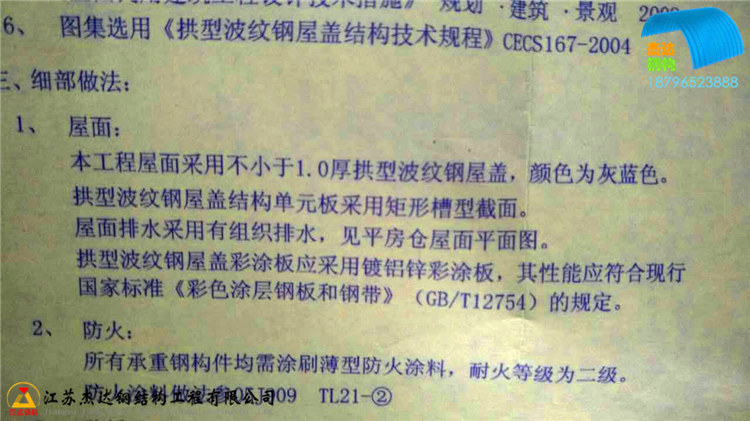 规划·建筑·景观
6、 图集选用《拱型波纹钢屋盖结构技术规程》CECS167-2004
杰达
钢构
18796523888
三、细部做法：
1、 屋面：
本工程屋面采用不小于1.0厚拱型波纹钢屋盖，颜色为灰蓝色。
拱型波纹钢屋盖结构单元板采用矩形槽型截面。
屋面排水采用有组织排水，见平房仓屋面平面图。
拱型波纹钢屋盖彩涂板应采用镀铝锌彩涂板，其性能应符合现行
国家标准《彩色涂层钢板和钢带》（GB/T12754）的规定。
2、 防火：
所有承重钢构件均需涂刷薄型防火涂料，耐火等级为二级。
防火涂料做法参 TL21-②
江苏杰达钢结构工程有限公司